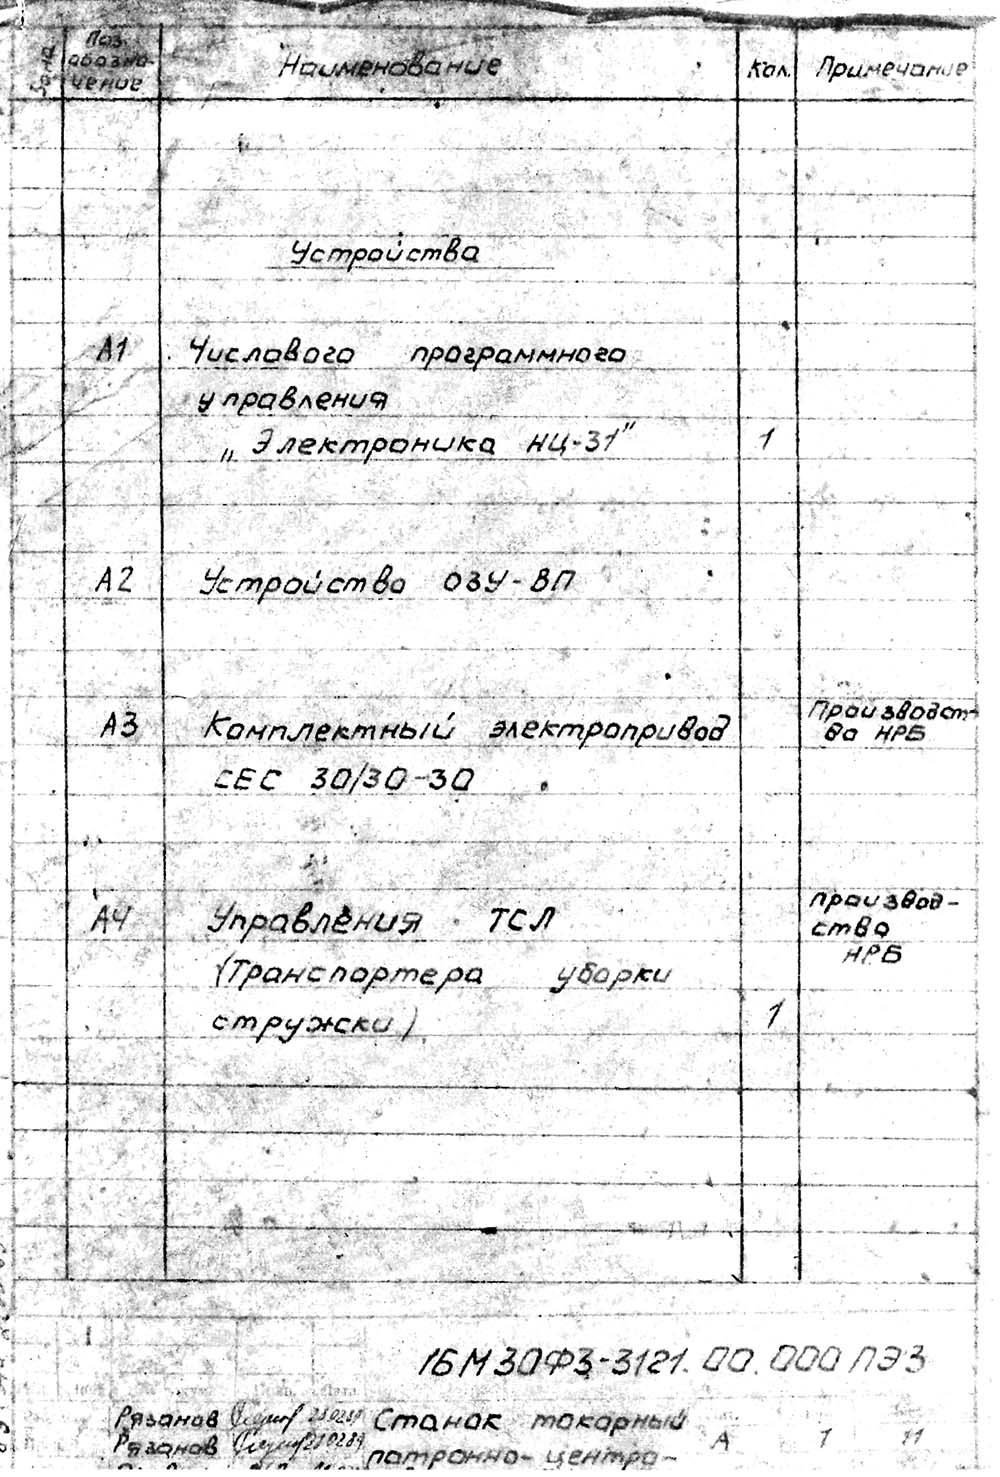 Зона
Поз.
обозна-
чение
Наименование
Кол.
Примечание
Устройства
А1 Числового программного
управления
„Электроника НЦ-31" 1
А2 Устройство ОЗУ-ВП
А3 Комплектный электропривод
СЕС 30/30-30
Производст-
ва НРБ
А4 Управления ТСЛ
(Транспортера уборки
стружки) 1
производ-
ство
НРБ
16М30Ф3-3121.00.000ПЭ3
Рязанов Станок токарный
Рязанов патронно-центро-
А 1 11